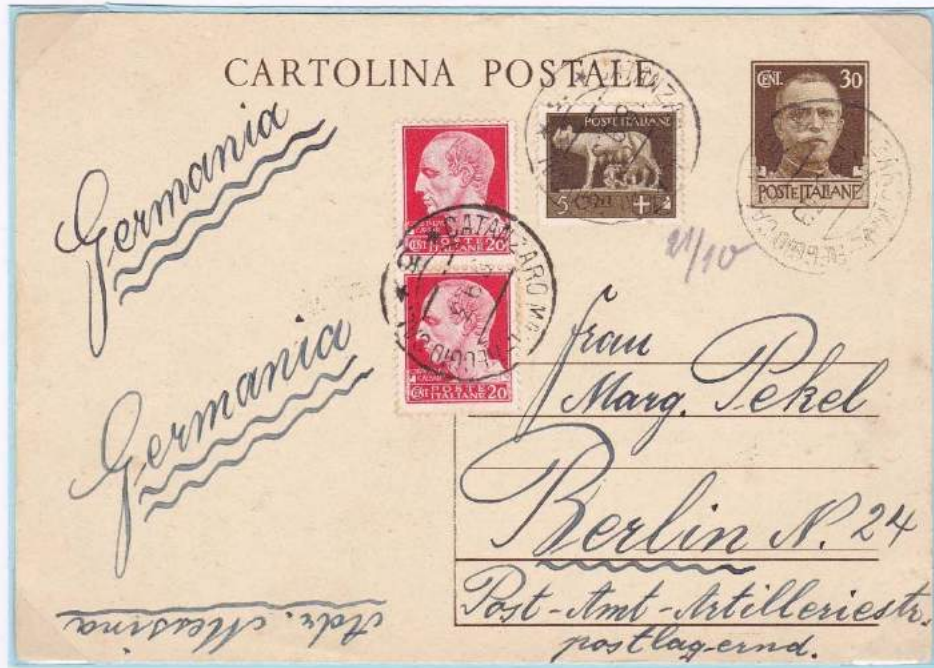 CARTOLINA POSTALE
CENT. 30
POSTE ITALIANE
POSTE ITALIANE
5
CENT 20
POSTE ITALIANE
CENT 20
POSTE ITALIANE
CATANZARO
Germania
Germania
21/10
Frau
Marg. Pekel
Berlin N. 24
Post-Amt-Artilleriestr.
postlagernd.
Adr. Messina